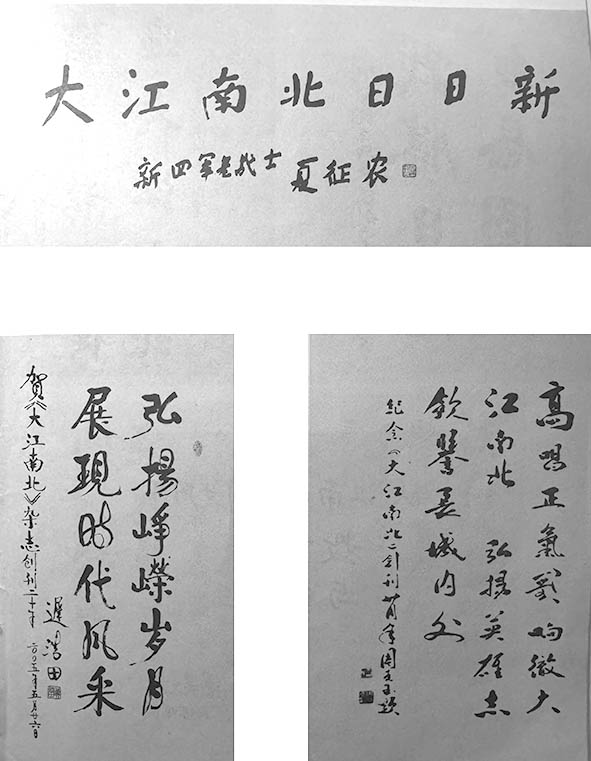 大江南北日日新
新四军老战士 夏征农
弘揚崢嶸岁月
展現时代风采
遲浩田
賀《大江南北》杂志创刊二十年
二〇〇五年五月廿六日
高唱正氣歌响徹大
江南北 弘揚英雄志
飲譽長城内外
紀念《大江南北》创刊廿周年周克玉题